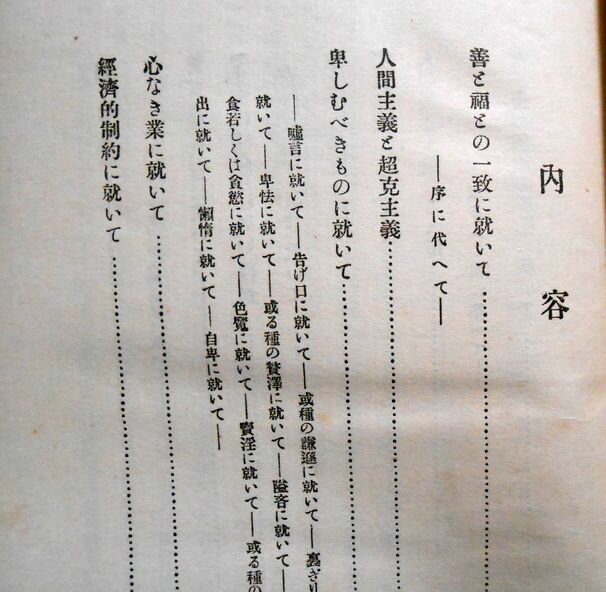 內容
善と福との一致に就いて
──序に代へて──
人間主義と超克主義
卑しむべきものに就いて
──噓言に就いて──告げ口に就いて──或種の謙遜に就いて──裏ぎり
就いて──卑怯に就いて──或る種の贅澤に就いて──隘吝に就いて──
食若しくは貪慾に就いて──色魔に就いて──賣淫に就いて──或る種の
出に就いて──懶惰に就いて──自卑に就いて──
心なき業に就いて
經濟的制約に就いて